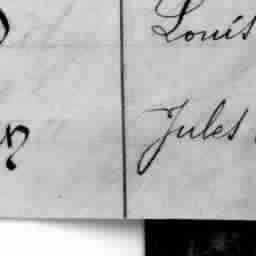 Louis
Jules